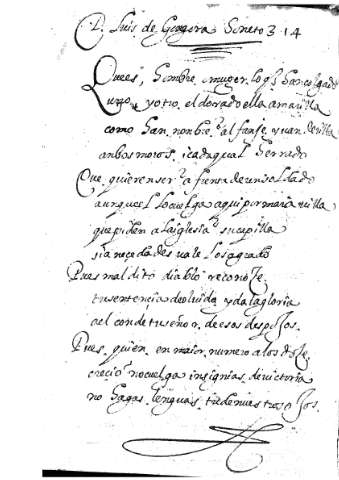 D. Luis de Gongora Soneto 314
Que es, hombre o muger lo q̃ han colgado
Uno, y otro, el dorado ella amarilla
como han nombre al fanse y van
anbos moros, i cada qual herrado
Que quieren ser a fuersa de un soldado
aunque el lo cuelga aqui por maravilla
que piden a la iglesia su capilla
sagrado
Pues maldito diablo reconose
tu sentencia de olvido, y da la gloria
al conde tu señor de esos despojos.
Pues quien en maior numero a los doze
crecio no cuelga insignias de victoria
no hagas lenguas tu de nuestros ojos.